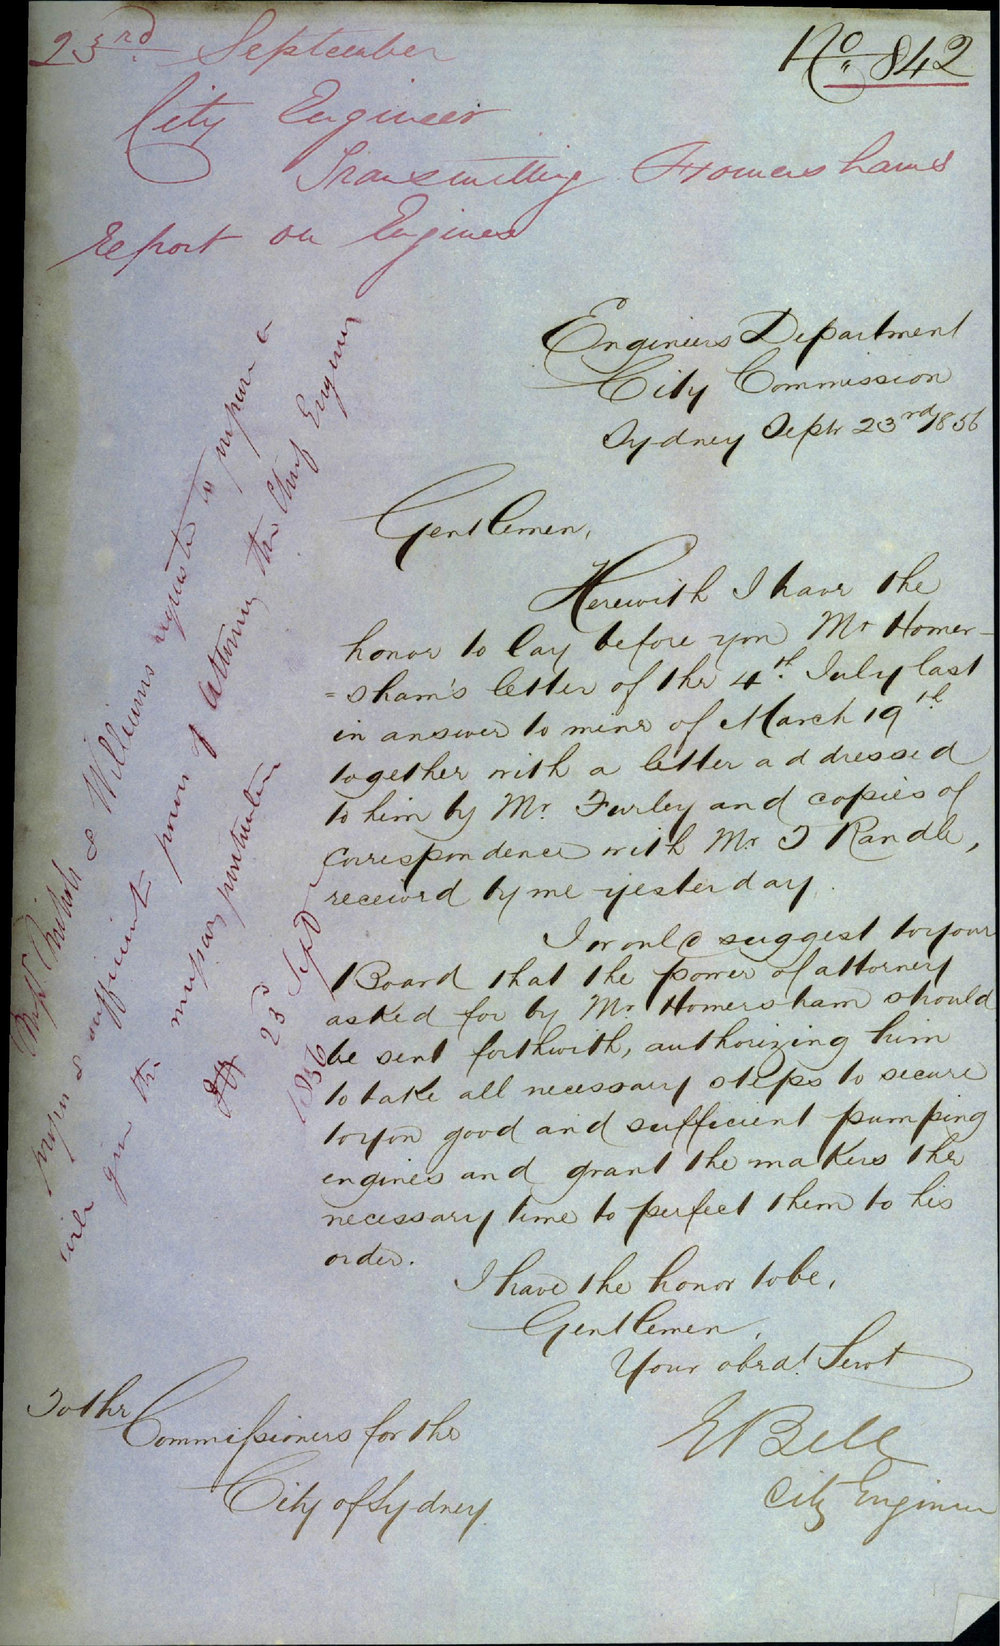 23rd September
No. 842
City Engineer
Transmitting Homershams
report on Engines
Engineers Department
City Commission
Sydney Septr 23rd 1856
Gentlemen,
Herewith I have the
honor to lay before you Mr Homer-
=sham's letter of the 4th. July last
in answer to mine of March 19th
together with a letter addressed
to him by Mr. Furley and copies of
Correspondence with Mr T Randle,
received by me yesterday.
I would suggest to your
Board that the power of attorney
asked for by Mr Homersham should
be sent forthwith, authorizing him
to take all necessary steps to secure
to you good and sufficient pumping
engines and grant the makers the
necessary time to perfect them to his
order.
I have the honor to be,
Gentlemen,
Your obedt. Servt
E Bell
City Engineer
To the
Commissioners for the
City of Sydney
& Williams requested to prepare a
proper & sufficient power of attorney the Chief Engineer
will give the necessary particulars
23d Sept
1856